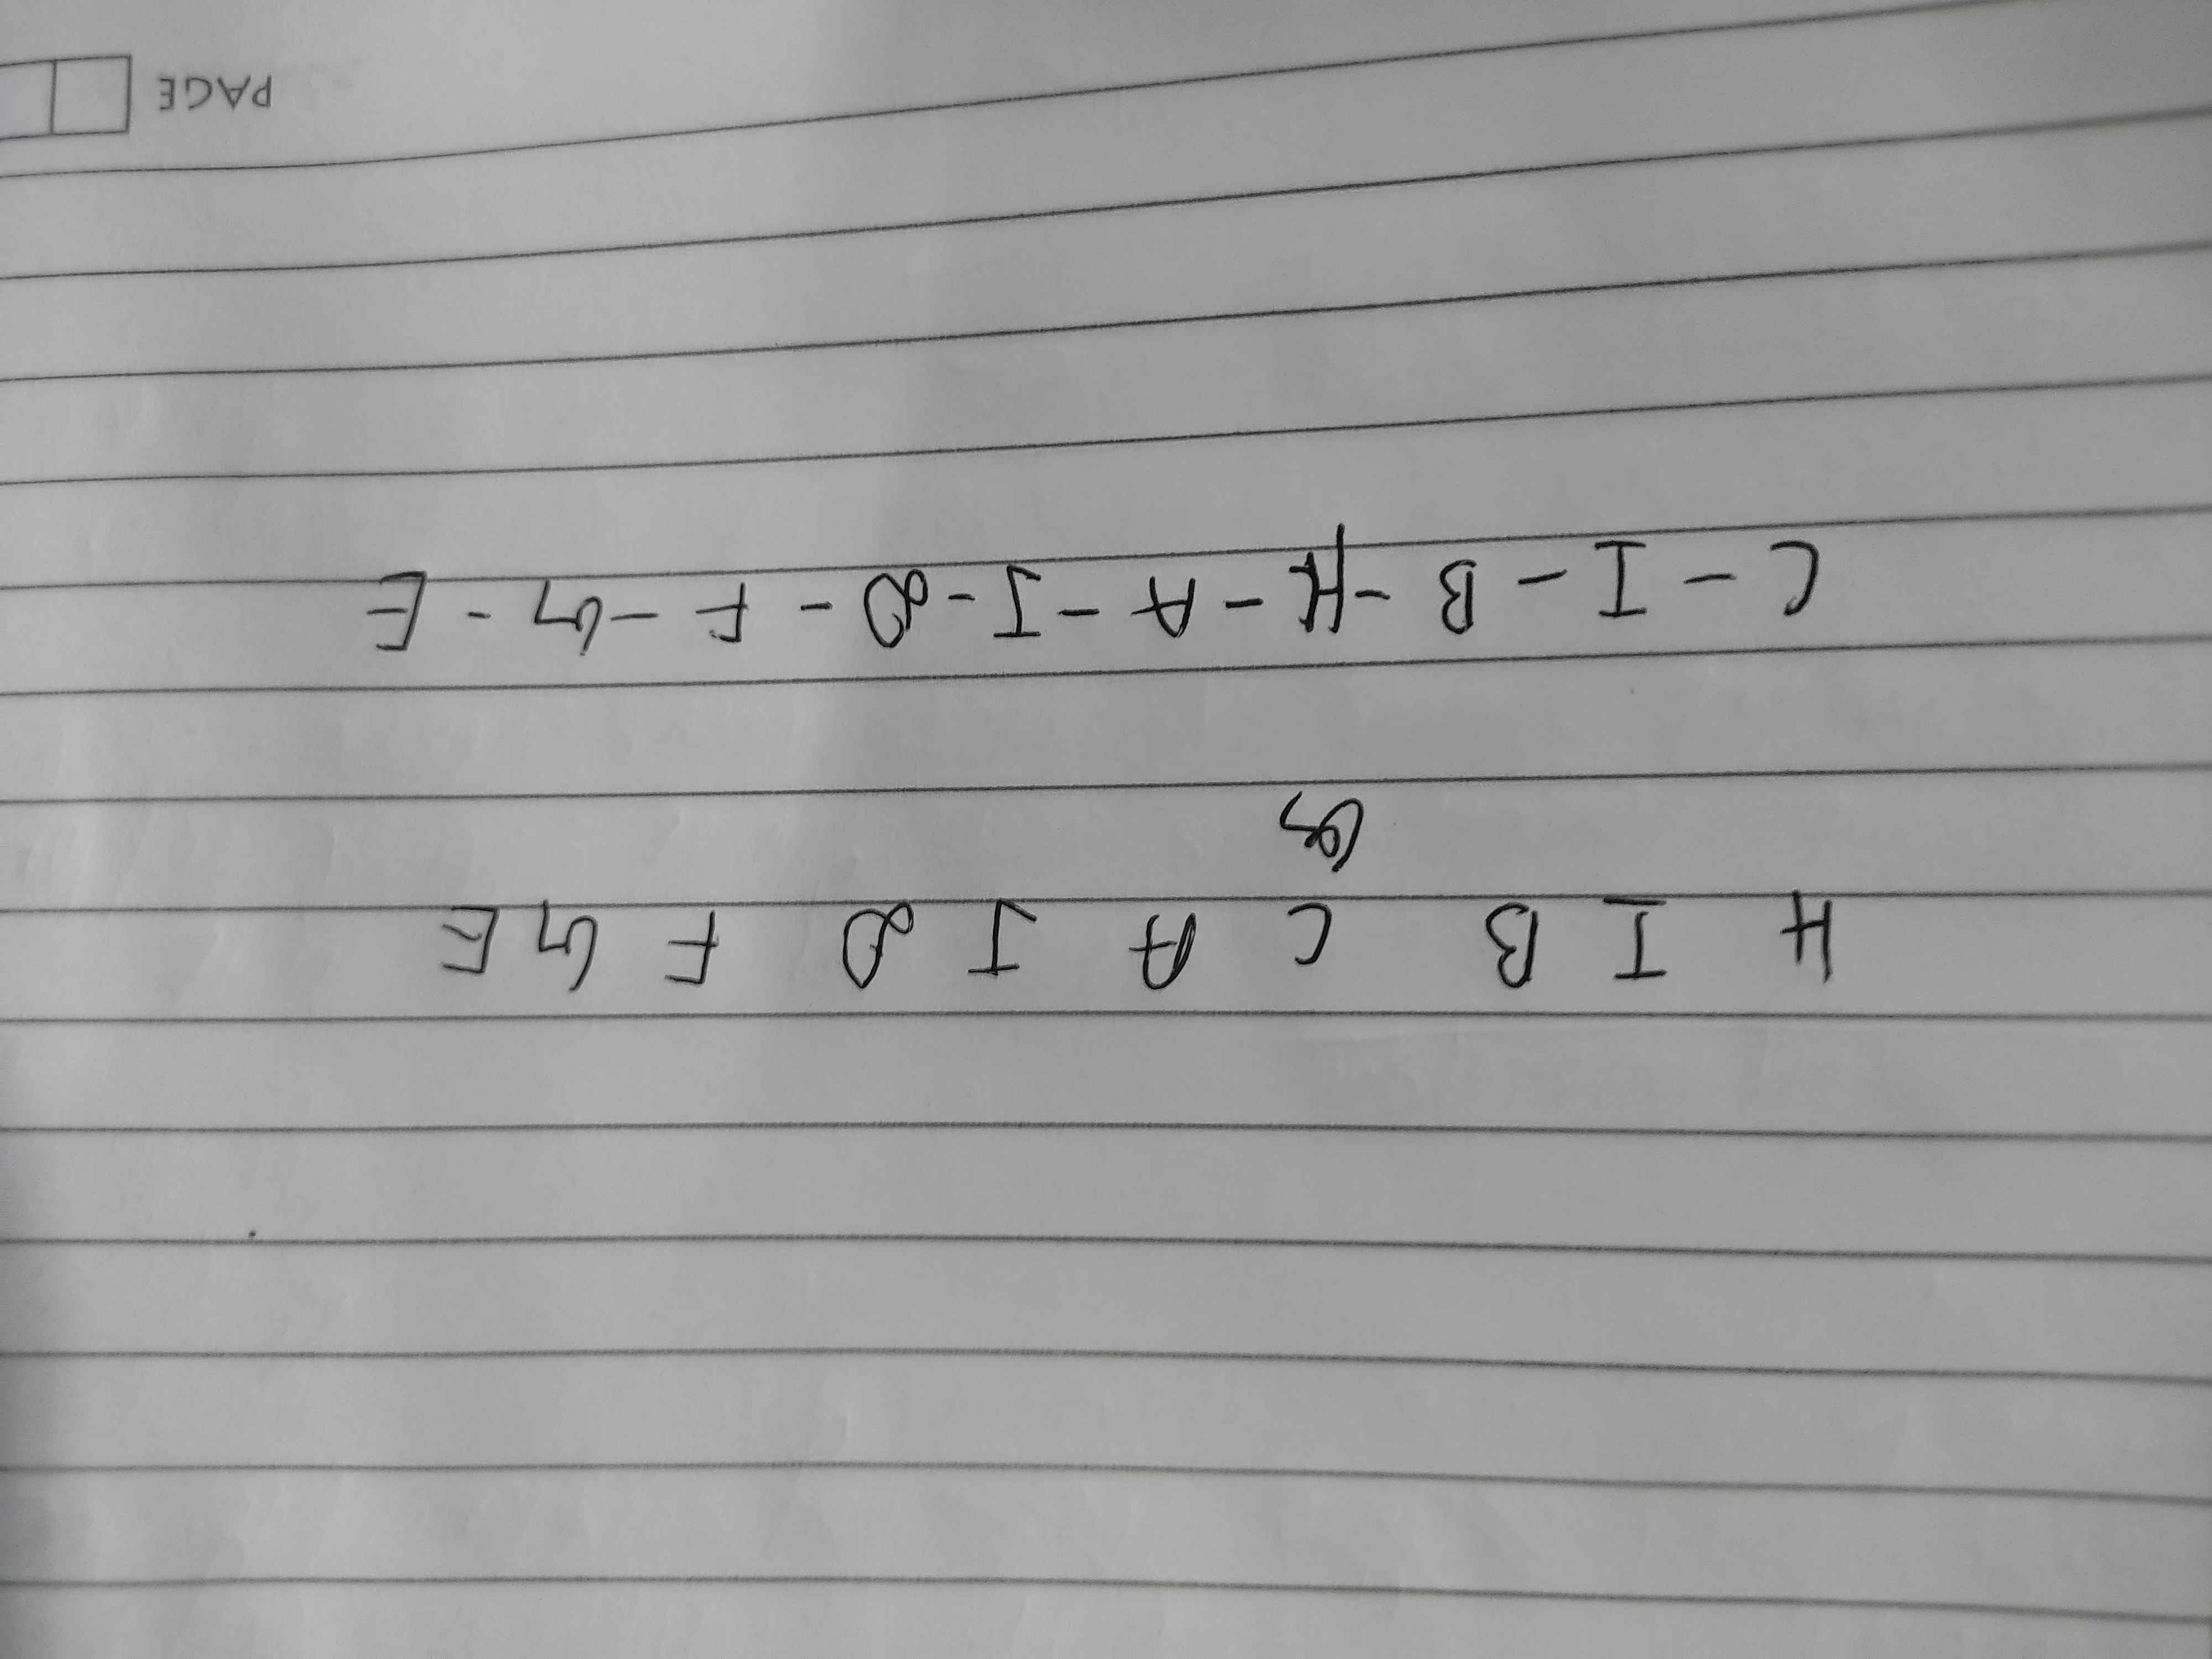 H I B C A J D F G E
C - I - B - H - A - J - D - F - G - E
PAGE